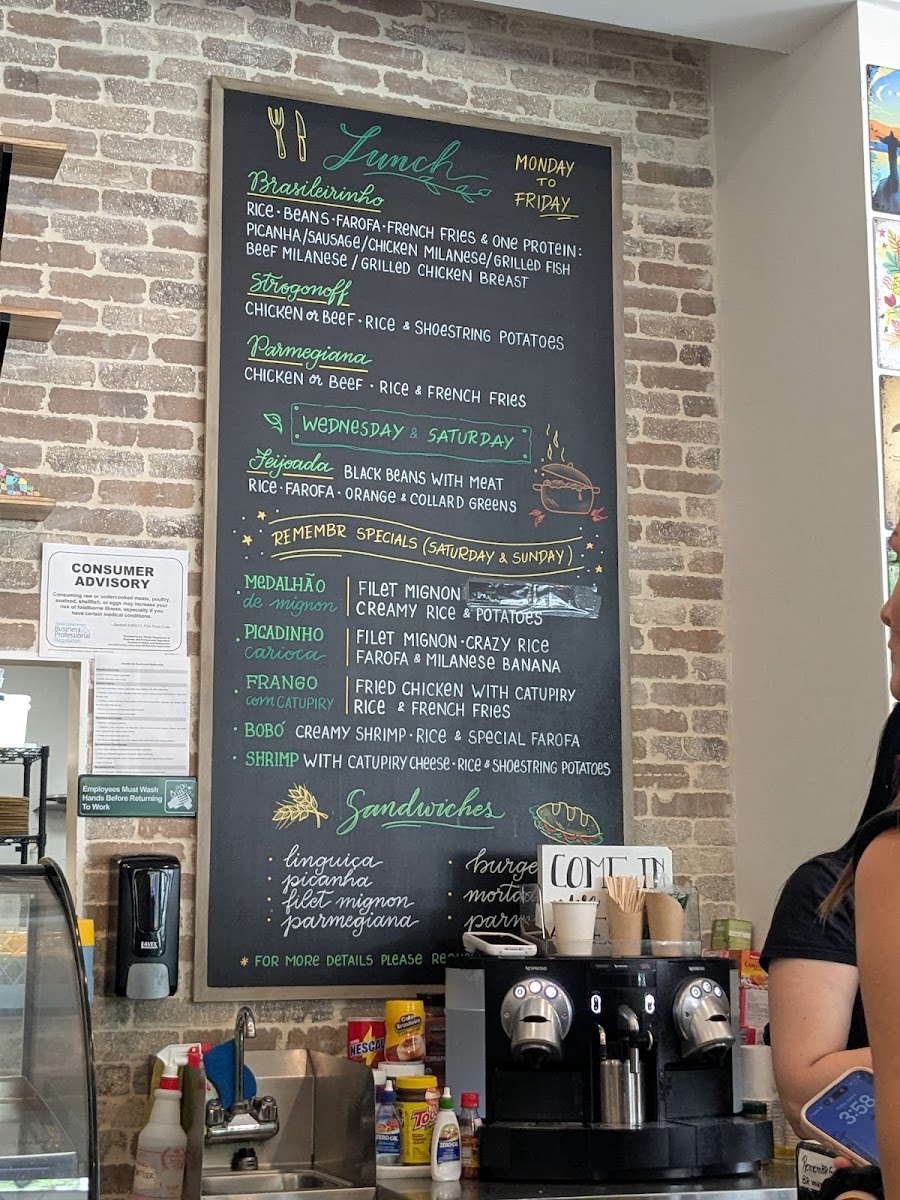 Lunch
MONDAY
TO
FRIDAY
Brasileirinho
RICE · BEANS · FAROFA · FRENCH FRIES & ONE PROTEIN:
PICANHA/SAUSAGE/CHICKEN MILANESE/GRILLED FISH
BEEF MILANESE / GRILLED CHICKEN BREAST
Strogonoff
CHICKEN or BEEF · RICE & SHOESTRING POTATOES
Parmegiana
CHICKEN or BEEF · RICE & FRENCH FRIES
WEDNESDAY & SATURDAY
Feijoada BLACK BEANS WITH MEAT
RICE · FAROFA · ORANGE & COLLARD GREENS
REMEMBR SPECIALS (SATURDAY & SUNDAY)
· MEDALHÃO de mignon
FILET MIGNON
CREAMY RICE & POTATOES
· PICADINHO carioca
FILET MIGNON · CRAZY RICE
FAROFA & MILANESE BANANA
· FRANGO com CATUPIRY
FRIED CHICKEN WITH CATUPIRY
RICE & FRENCH FRIES
· BOBÓ CREAMY SHRIMP · RICE & SPECIAL FAROFA
· SHRIMP WITH CATUPIRY CHEESE · RICE & SHOESTRING POTATOES
Sandwiches
· linguiça
· picanha
· filet mignon
· parmegiana
· burge
· mortad
· parm
* FOR MORE DETAILS PLEASE REQU
CONSUMER
ADVISORY
Consuming raw or undercooked meats, poultry,
seafood, shellfish, or eggs may increase your
risk of foodborne illness, especially if you
have certain medical conditions.
Business &
Professional
Regulation
Employees Must Wash
Hands Before Returning
To Work
COME IN
NESPRESSO
NESPRESSO
NESCAU
ZERO-CAL
ZERO-CAL
3:58